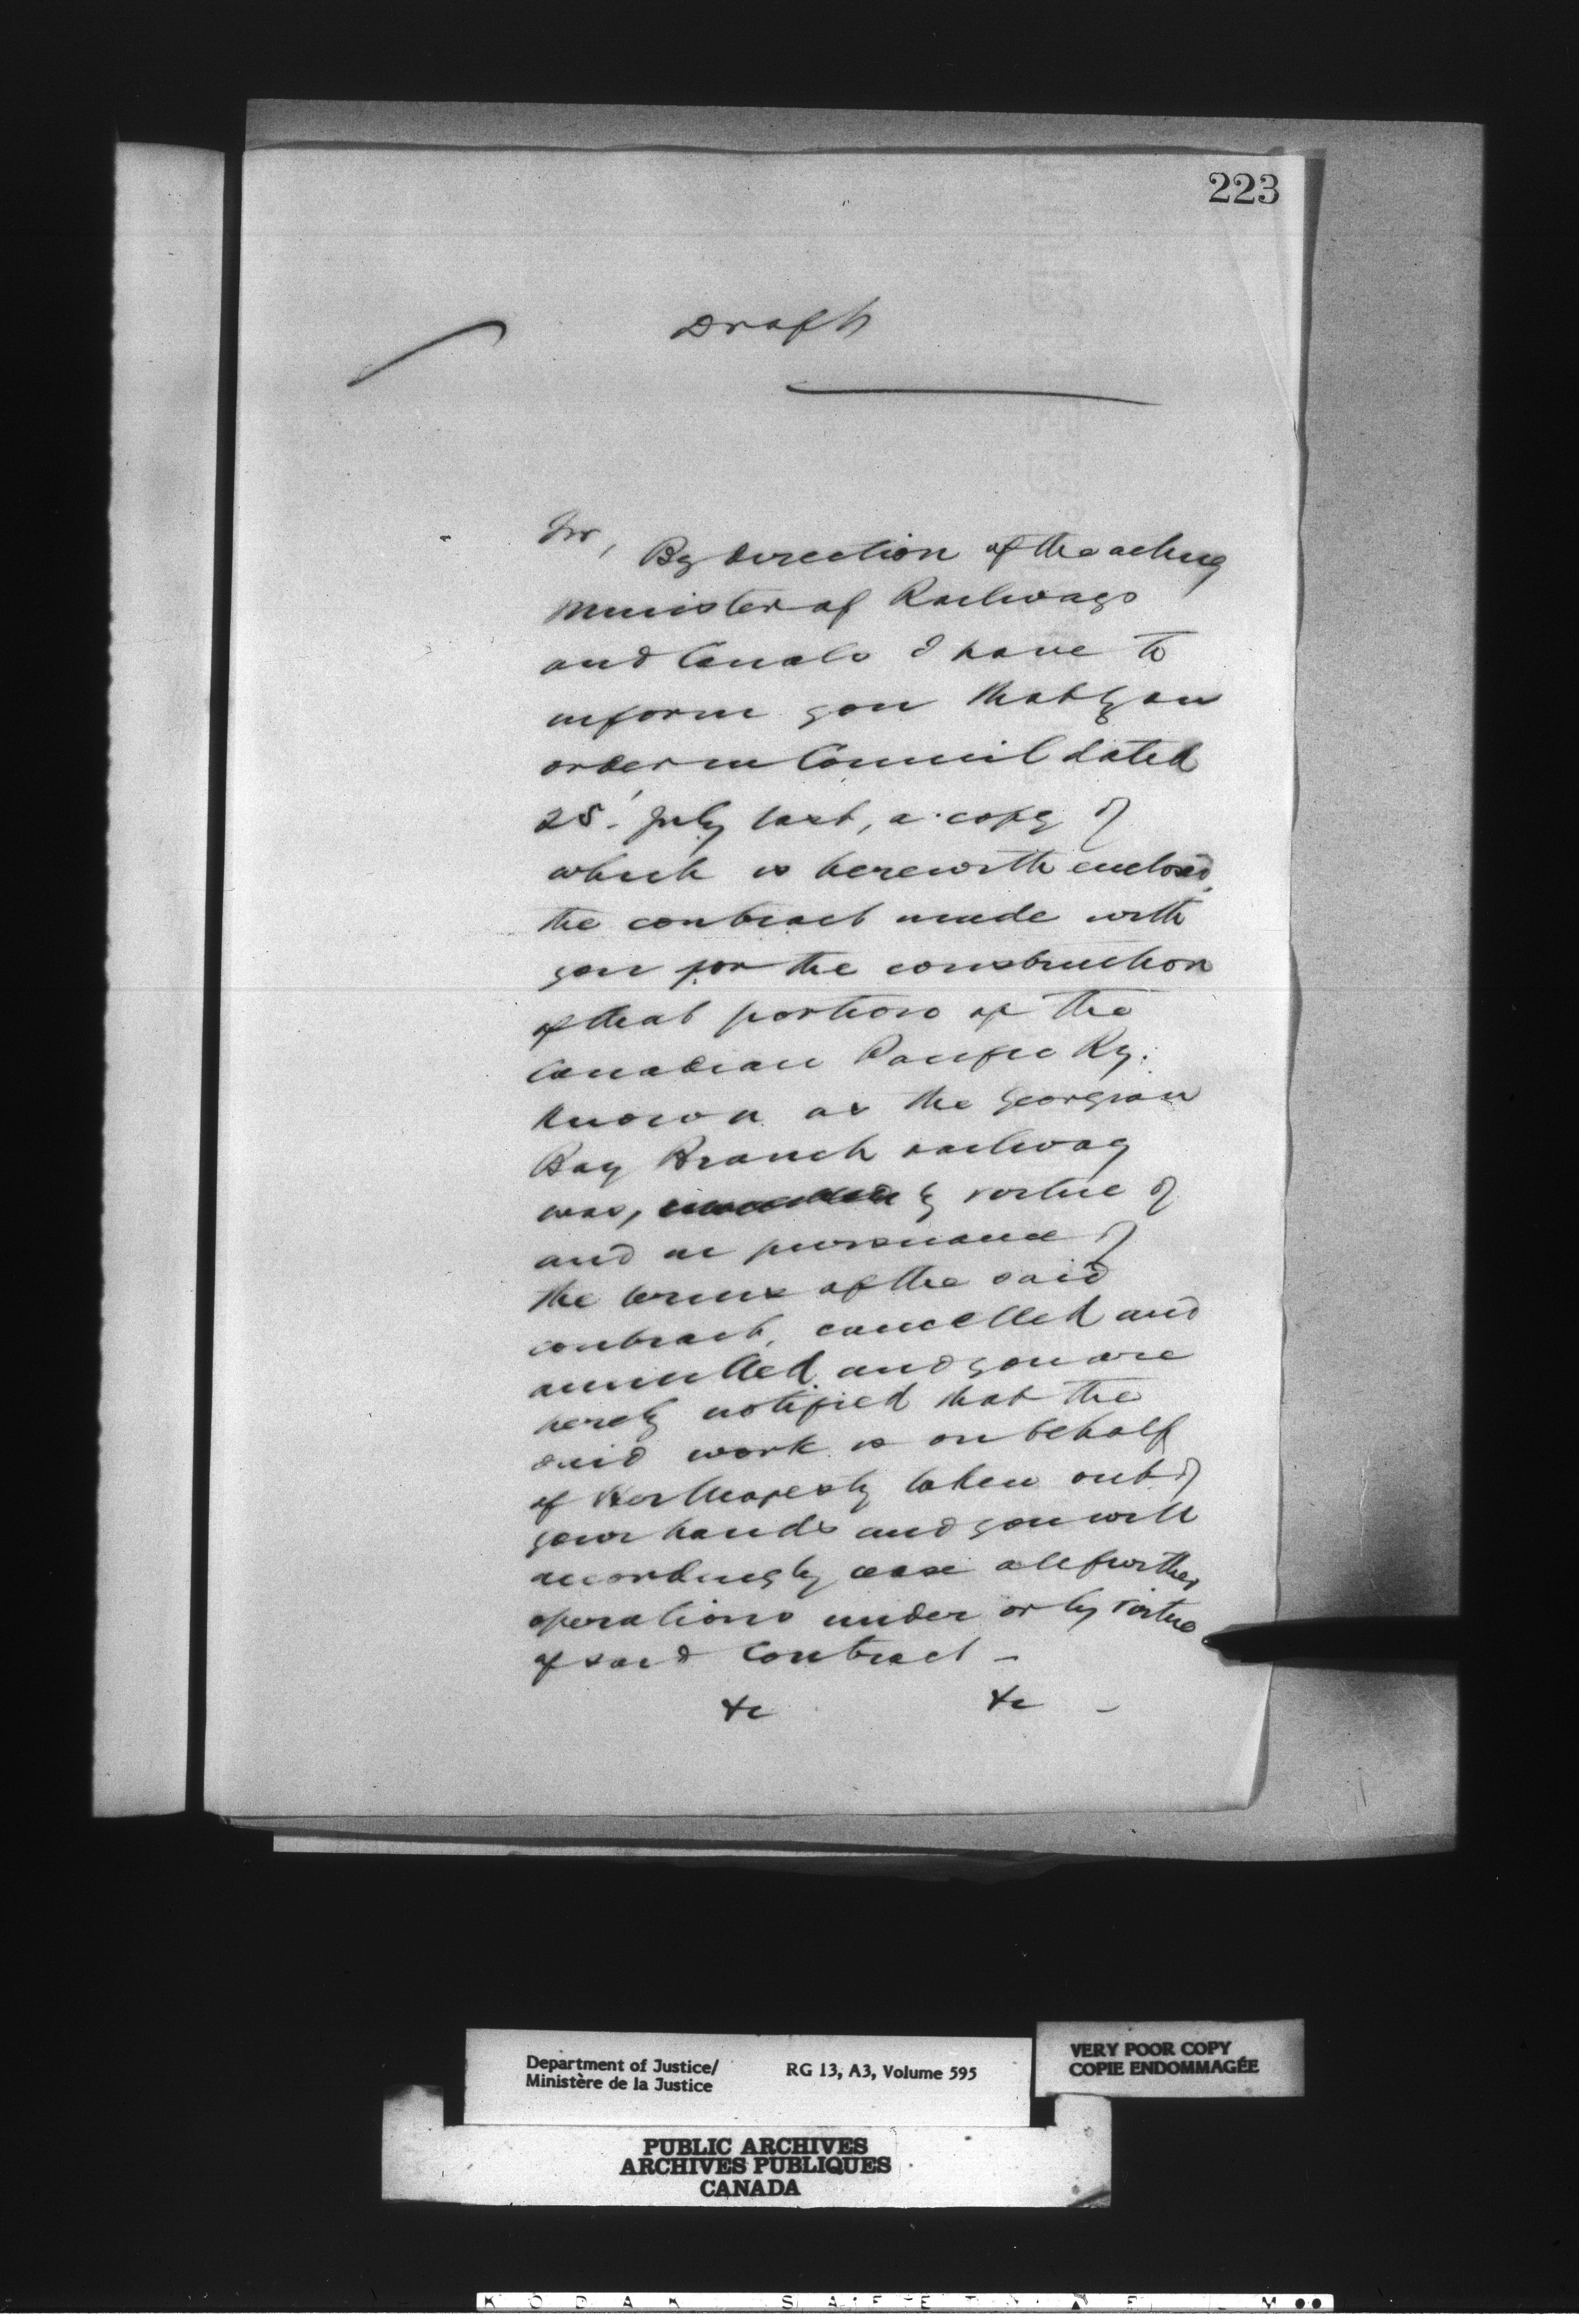 223
Draft
Sir,
By direction of the acting
Minister of Railways
and Canals I have to
inform you that by an
order in Council dated
25. July last, a copy of
which is herewith enclosed,
the contract made with
you for the construction
of that portion of the
Canadian Pacific Ry.
known as the Georgian
Bay Branch railway
was, by virtue of
and in pursuance of
the terms of the said
contract, cancelled and
annulled, and you are
hereby notified that the
said work is on behalf
of Her Majesty taken out of
your hands and you will
accordingly cease all further
operations under or by virtue
of said contract —
&c &c —
Department of Justice/ RG 13, A3, Volume 595
Ministère de la Justice
VERY POOR COPY
COPIE ENDOMMAGÉE
PUBLIC ARCHIVES
ARCHIVES PUBLIQUES
CANADA
KODAK SAFETY